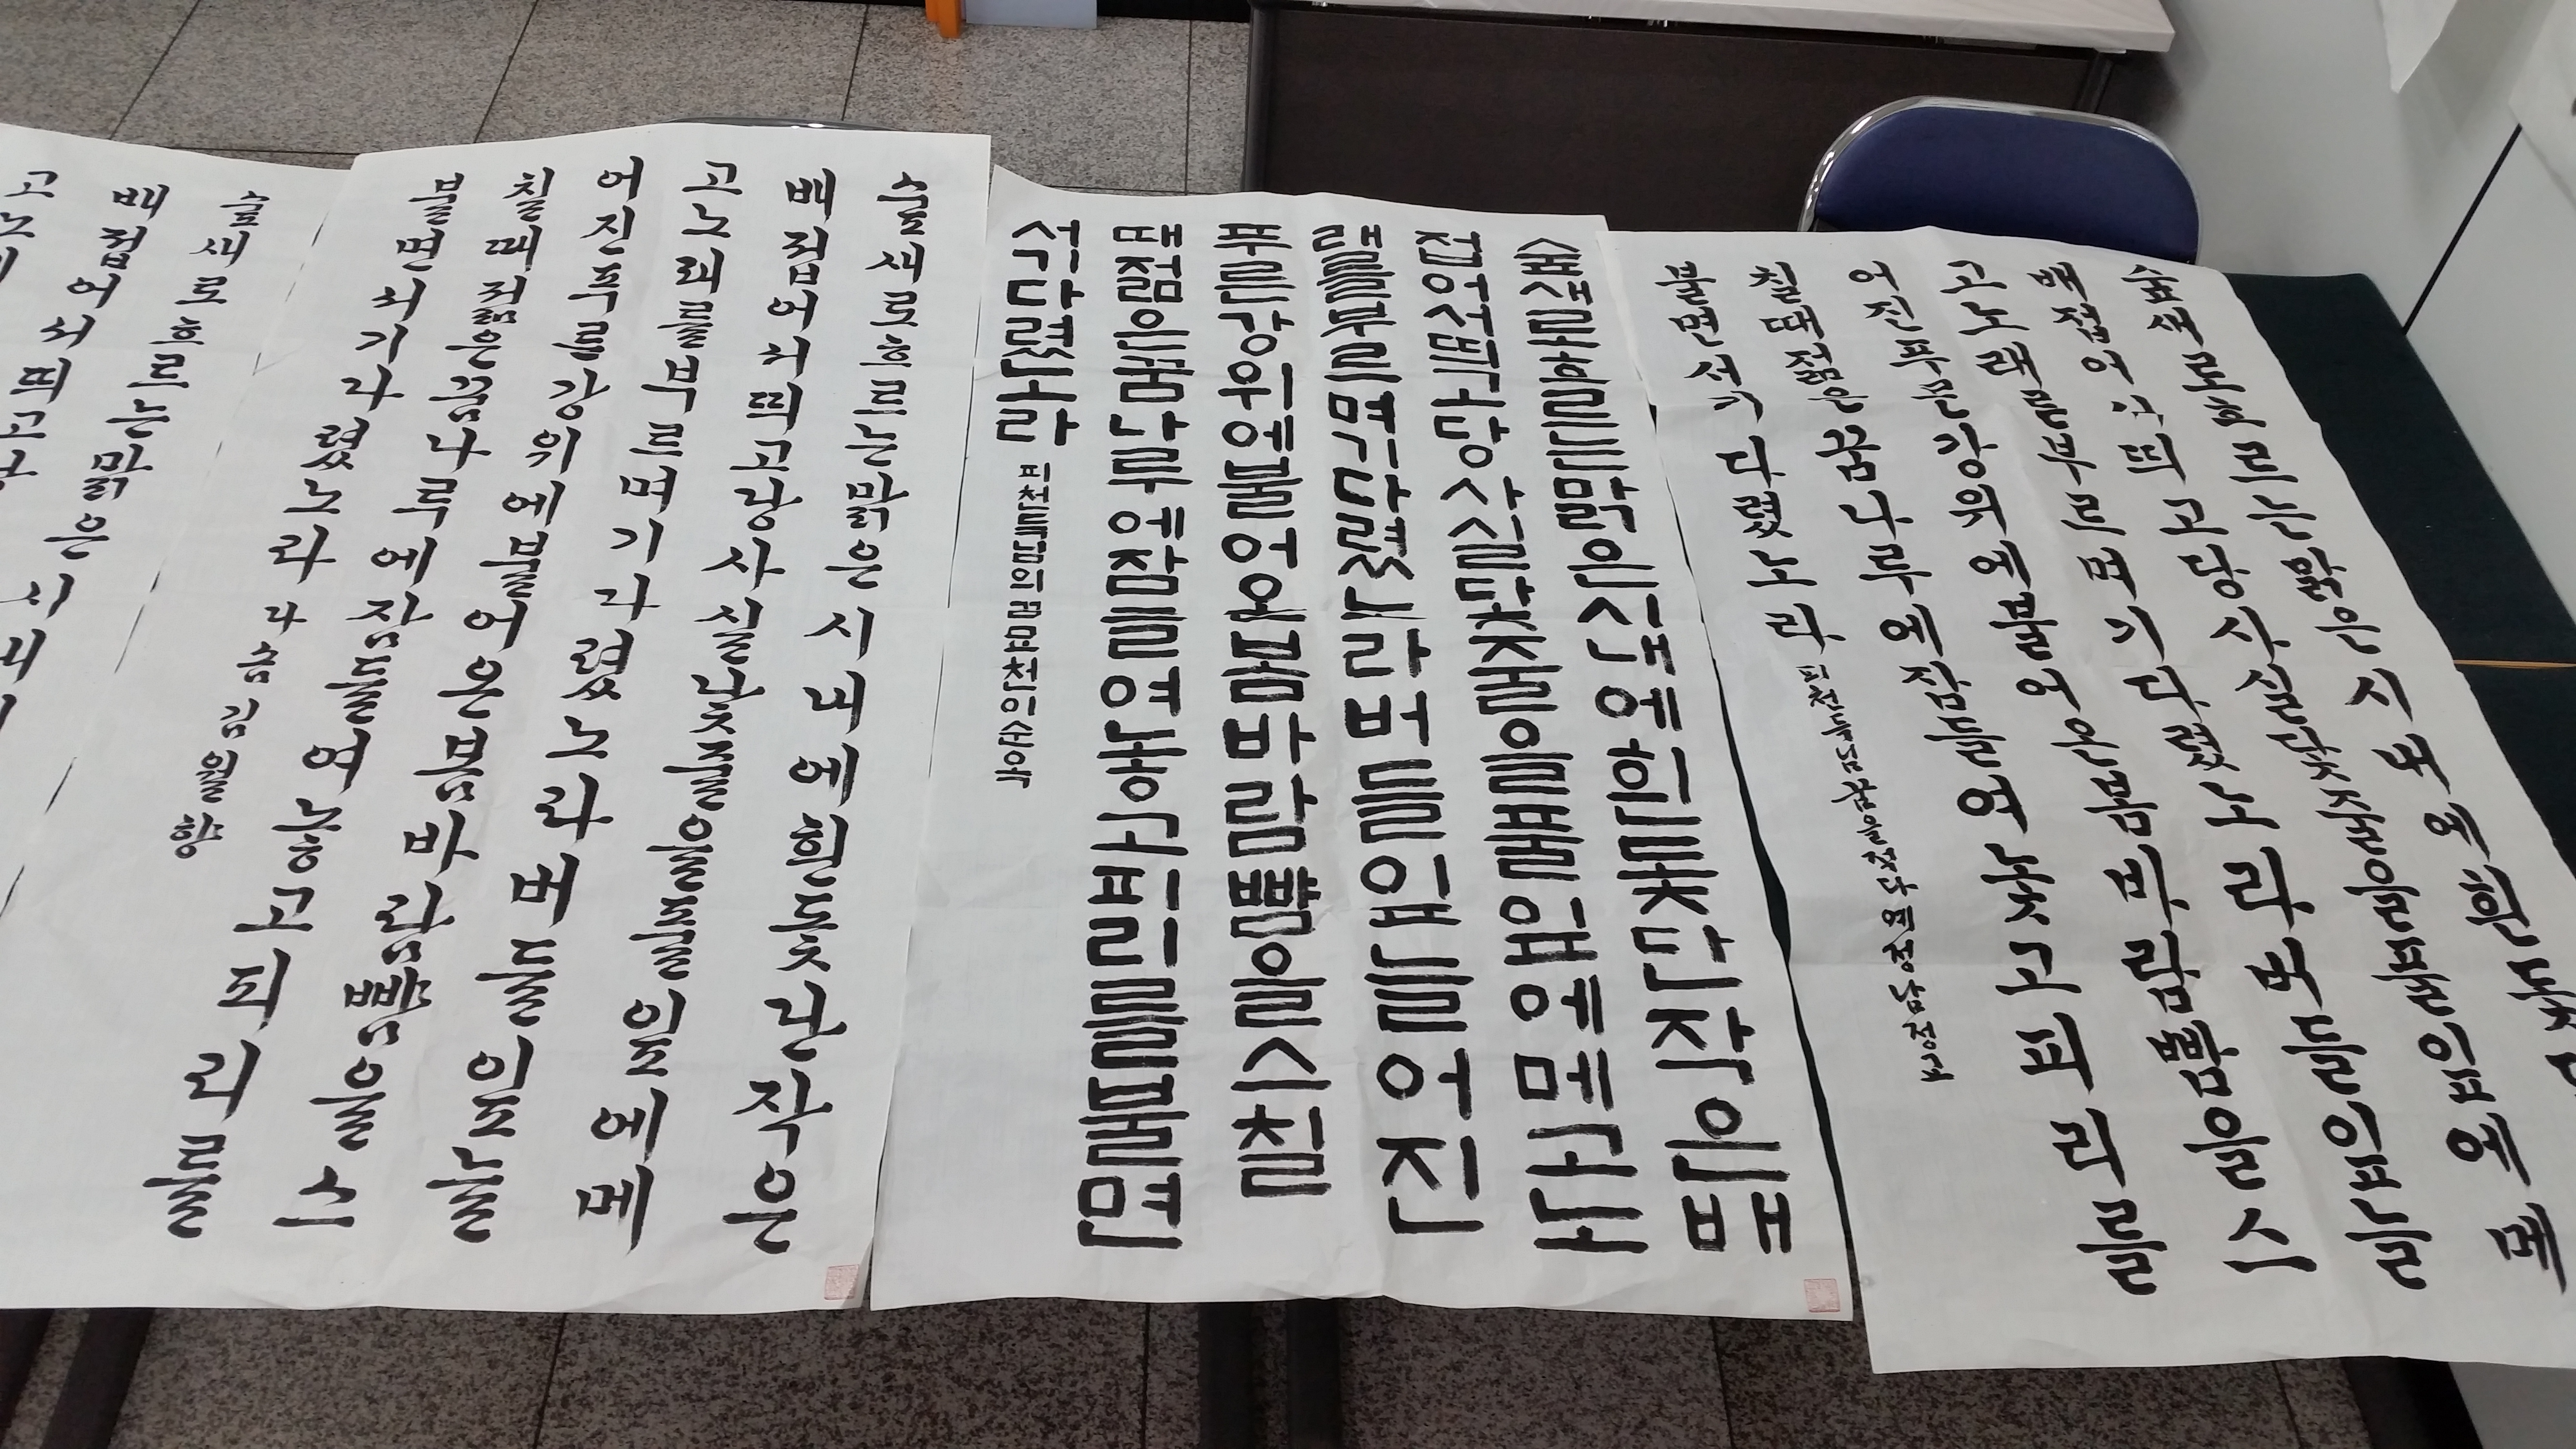 숲새로흐르는맑은시내에흰돛단
배접어서띄고당사실닻줄을풀잎에메
고노래를부르며기다렸노라버들잎늘
어진푸른강위에불어온봄바람뺨을스
칠때젊은꿈나루에잠들여놓고피리를
불면서기다렸노라 피천득님 꿈을적다
숲새로흐르는맑은시내에흰돛단작은배
접어서띄고당사실닻줄을풀잎에메고노
래를부르며기다렸노라버들잎늘어진
푸른강위에불어온봄바람뺨을스칠
때젊은꿈나루에잠들여놓고피리를불면
서기다렸노라 피천득님의꿈
숲새로흐르는맑은시내에흰돛단작은
배접어서띄고당사실닻줄을풀잎에메
고노래를부르며기다렸노라버들잎늘
어진푸른강위에불어온봄바람뺨을스
칠때젊은꿈나루에잠들여놓고피리를
불면서기다렸노라 김월향
숲새로흐르는맑은시내
배접어서띄고
고노